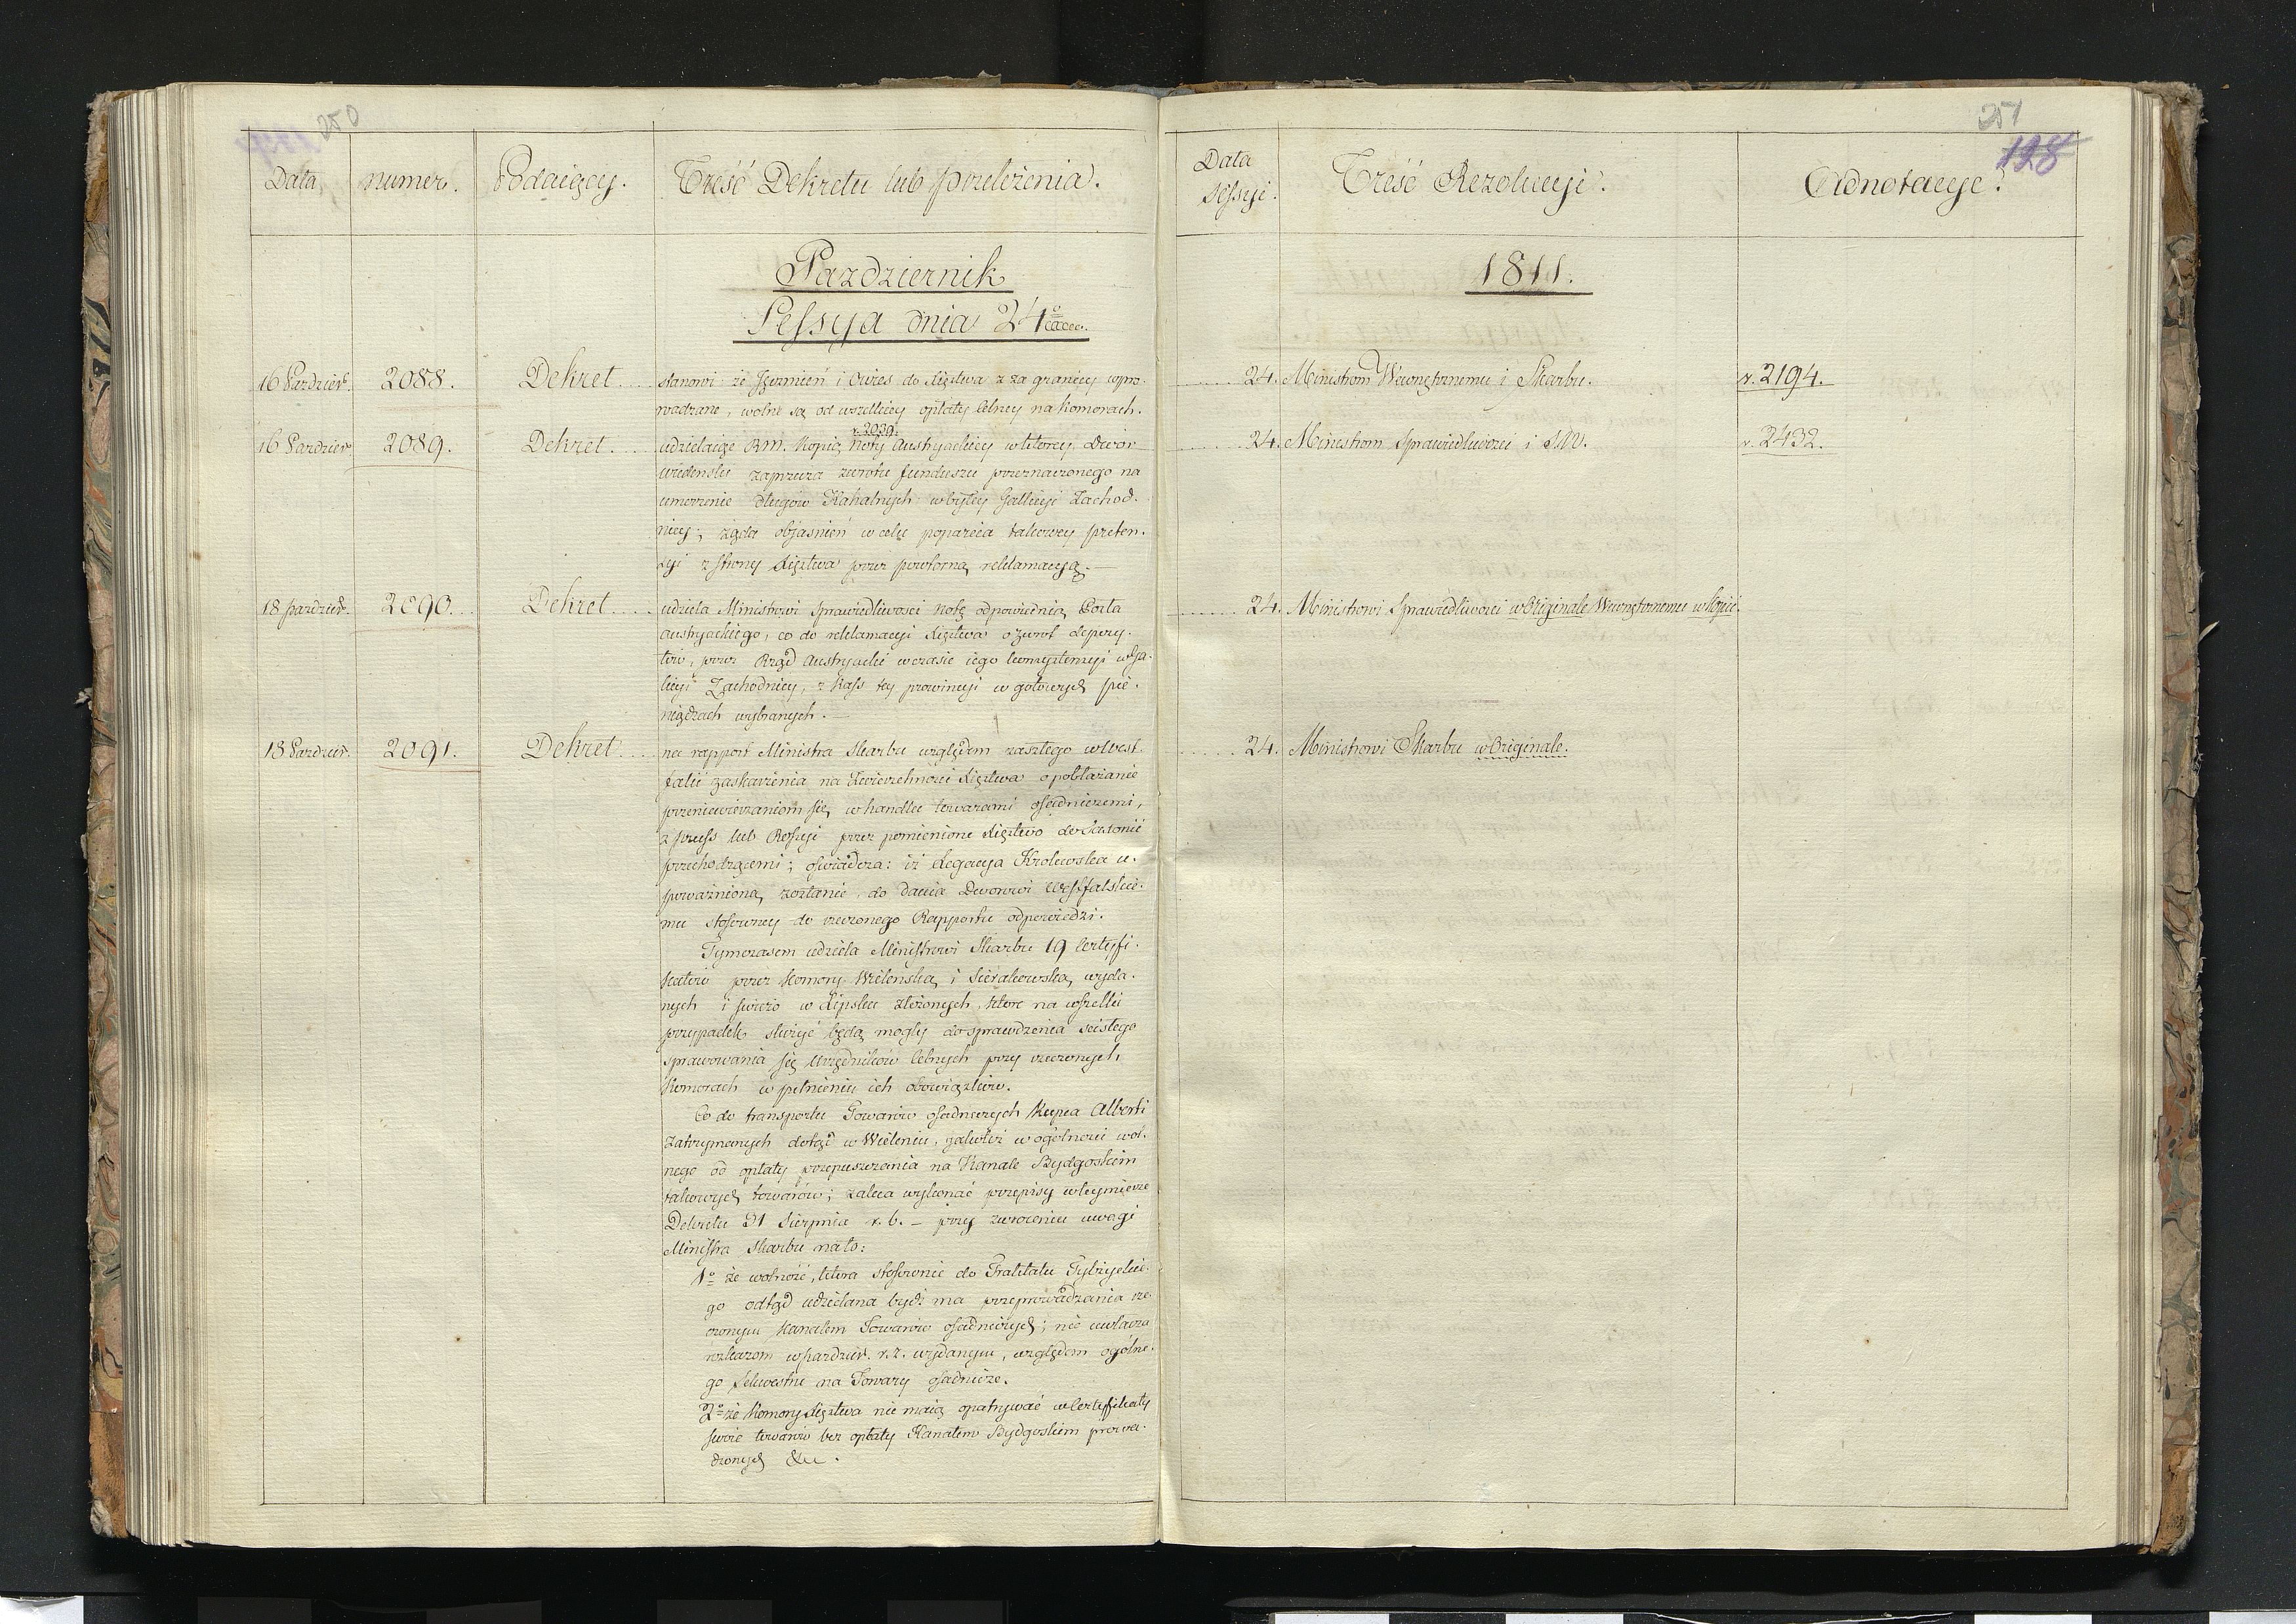 250
Data
numer.
Podaiący.
Treść Dekretu lub przełożenia.
Pazdziernik
Sessya dnia 24º
16 Pazdzier.
2088.
Dekret
stanowi: że Jęczmień i Owies do Xięztwa z za granicy wpro-
wadzane, wolne są od wszelkiey opłaty celney na Komorach.
16 Pazdzier.
2089.
Dekret
r. 2039.
udzielaiąc RM. Kopią Noty Austryackiey w którey Dwór
wiedenski zaprzecza zwrotu funduszu przeznaczonego na
umorzenie Długów Kahalnych w byłey Gallicyi Zachod-
niey; żąda objasnień w celu poparcia takowey preten-
syi z strony Xięztwa przez powtorną reklamacyą.—
18 pazdzier.
2090.
Dekret
udziela Ministrowi Sprawiedliwosci Notę odpowiednią Posła
Austryackiego, co do reklamacyi Xięztwa o zwrot depozy-
tów, przez Rząd Austryacki w czasie iego w Ga-
licyi Zachodniey, z Kass tey prowincyi w gotowych pie-
niądzach wybranych.—
18 Pazdzier.
2091.
Dekret
na rapport Ministra Skarbu względem zaszłego w West-
falii zaskarżenia na Zwierzchności Xięztwa o pobłażanie
przeniewierzaniom się w handlu towarami osadniczemi,
z Pruss lub Rossyi przez pomienione Xięztwo do Saxonii
przechodzącemi; oświadcza: iż Legacya Krolewska u-
poważnioną zostanie do dania Dworowi Westfalskie-
mu stosowney do rzeczonego Rapportu odpowiedzi.
Tymczasem udziela Ministrowi Skarbu 19 Certyfi-
katów przez Komory Wieleńską i Sierakowską wyda-
nych i swieżo w Lipsku złożonych, które na wszelki
przypadek służyć będą mogły do sprawdzenia scisłego
sprawowania się Urzędników Celnych przy rzeczonych
Komorach w pełnieniu ich obowiązków.
Co do transportu Towarów osadniczych Kupca Alberti
zatrzymanych dotąd w Wieleniu, jakoteż w ogólności wol-
nego od opłaty przepuszczania na Kanale Bydgoskim
takowych towarów; zaleca wykonać przepisy w tey mierze
Dekretu 31 Sierpnia r. b. – przy zwroceniu uwagi
Ministra Skarbu na to:
1º że wolność, która stosownie do Traktatu Tylżyckie-
go odtąd udzielana bydź ma przeprowadzania rze-
czonym Kanałem Towarów osadniczych; nie uwłacza
rozkazom w pazdzier. r. z. wydanym, względem ogólne-
go sekwestru na Towary osadnicze.
2º że Komory Xięztwa nie maią opatrywać w Certyfikaty
swoie towarów bez opłaty Kanałem Bydgoskim prowa-
dzonych &c.
251
128
Data
Sessyi.
Treść Rezolucyi.
Adnotacye.
1811.
24. Ministrom Wewnętrznemu i Skarbu.
r. 2194.
24. Ministrom Sprawiedliwości i SW.
r. 2432.
24. Ministrowi Sprawiedliwości w Originale Wewnętrznemu w Kopii.
24. Ministrowi Skarbu w Originale.